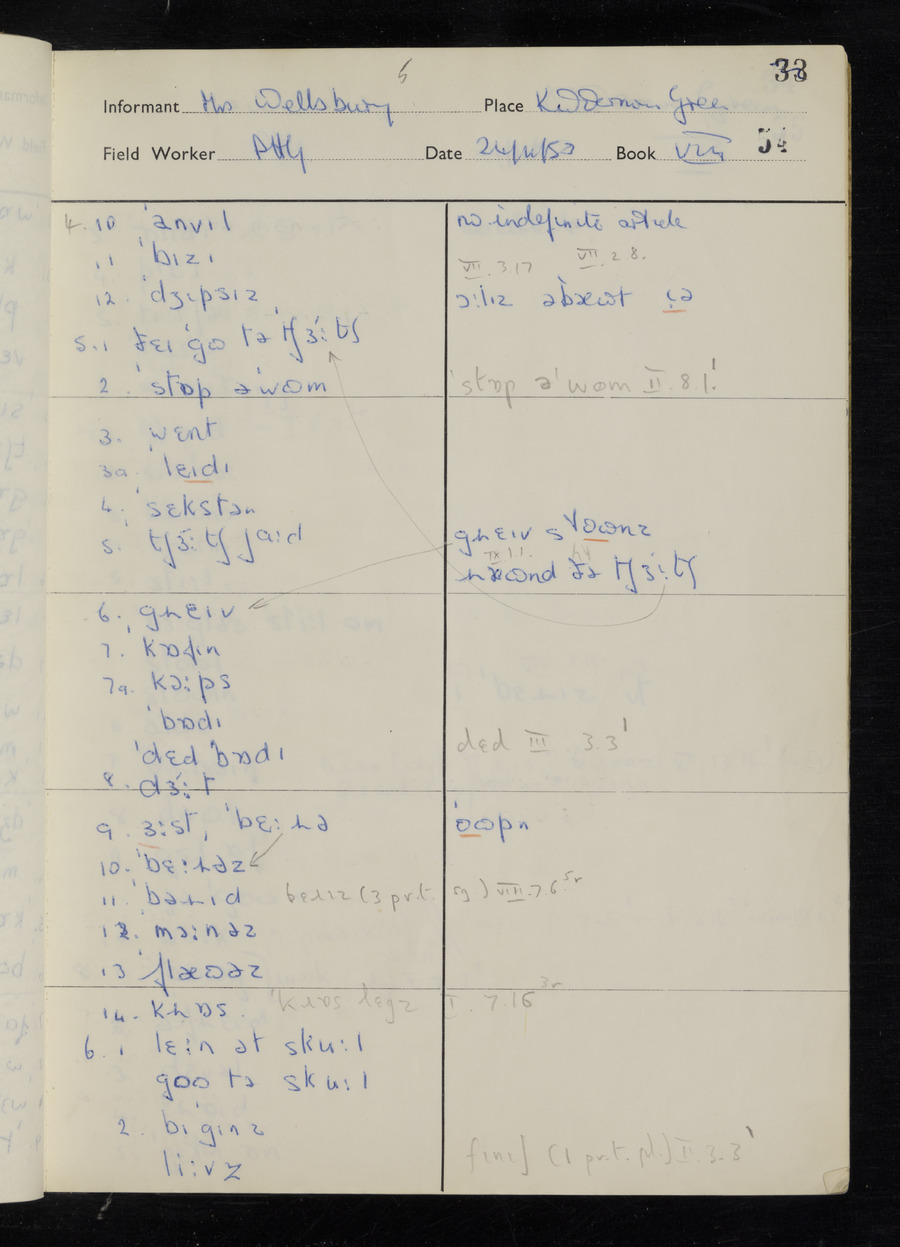 6
33
Informant Mrs Wellsbury Place Kidderminster Green
Field Worker PHG Date 24/4/53 Book VIII 54
4. 10 ˈanvɪl no indefinite article
11 ˈbɪzɪ VII.3.17 VII.2.8.
12. ˈdʒɪpsɪz ɔːlɪz əbæʊt
5.1 ðɛɪ ˈgʊ tə ˈtʃɜːtʃ
2. ˈstɒp əˈwʊm ˈstɒp əˈwʊm II.8.1.ˈ
3. ˈwɛnt
3a. ˈlɛɪdɪ
4. ˈsɛkstən
5. tʃɜːtʃ jaːd gɹɛɪv
IX 1 1.
ɹæʊnd ðə tʃɜːtʃ
6. gɹɛɪv
7. ˈkɒfɪn
7a. kɔːps
ˈbɒdɪ
ˈdɛd ˈbɒdɪ dɛd III 3.3ˈ
8. dɜːt
9. ɜːst, ˈbɛːɹə ˈoʊpn
10. ˈbɛːɹəz
11. ˈbəɹɪd bɛɹɪz (3 pr.t. sg) VIII.7.6
12. mɔːnəz
13 flæʊəz
14. kɹɒs. ˈkɹɒs lɛgz I.7.16
6. 1 lɛːn ət skuːl
goʊ tə skuːl
2. bɪˈgɪnz
liːvz fɪnɪʃ (1 pr.t. pl.) II.3.3ˈ